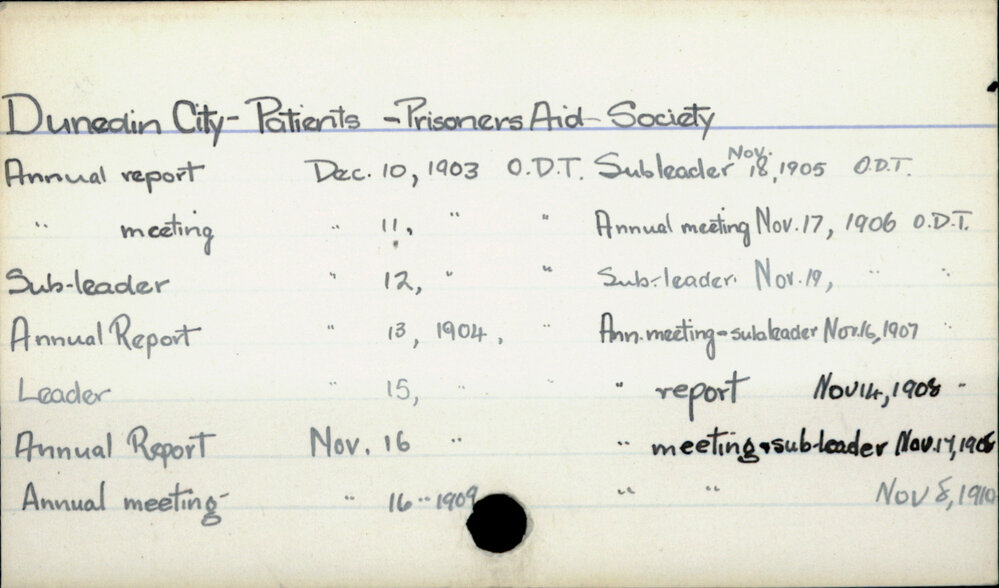 Dunedin City - Patients - Prisoners Aid Society
Annual report Dec. 10, 1903 O.D.T.
" meeting " 11, " "
Sub-leader " 12, " "
Annual Report " 13, 1904, "
Leader " 15, " "
Annual Report Nov. 16 "
Annual meeting " 16 " 1909
Subleader Nov. 18, 1905 O.D.T.
Annual meeting Nov. 17, 1906 O.D.T.
Sub-leader. Nov. 19, " "
Ann. meeting - subleader Nov. 16, 1907 "
" report Nov 14, 1908 "
" meeting & sub-leader Nov. 17, 1908
" " Nov 8, 1910